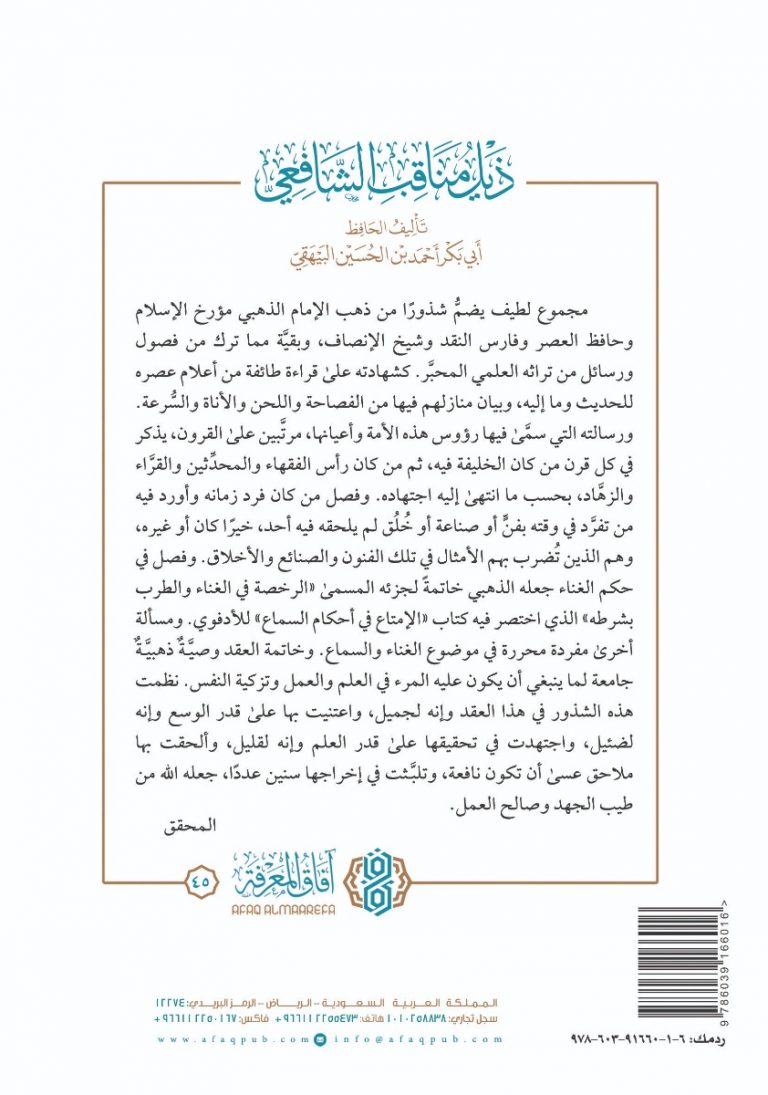 ذَيْلُ مَنَاقِبِ الشَّافِعِيِّ
تَأْلِيفُ الحَافِظ
أَبِي بَكْر أَحْمَد بْن الحُسَيْن البَيْهَقِيّ
مجموع لطيف يضمُّ شذورًا من ذهب الإمام الذهبي مؤرخ الإسلام
وحافظ العصر وفارس النقد وشيخ الإنصاف، وبقيَّة مما ترك من فصول
ورسائل من تراثه العلمي المحبَّر. كشهادته علىٰ قراءة طائفة من أعلام عصره
للحديث وما إليه، وبيان منازلهم فيها من الفصاحة واللحن والأناة والسُّرعة.
ورسالته التي سمَّىٰ فيها رؤوس هذه الأمة وأعيانها، مرتَّبين علىٰ القرون، يذكر
في كل قرن من كان الخليفة فيه، ثم من كان رأس الفقهاء والمحدِّثين والقرَّاء
والزهَّاد، بحسب ما انتهىٰ إليه اجتهاده. وفصل من كان فرد زمانه وأورد فيه
من تفرَّد في وقته بفنٍّ أو صناعة أو خُلُق لم يلحقه فيه أحد، خيرًا كان أو غيره،
وهم الذين تُضرب بهم الأمثال في تلك الفنون والصنائع والأخلاق. وفصل في
حكم الغناء جعله الذهبي خاتمةً لجزئه المسمىٰ «الرخصة في الغناء والطرب
بشرطه» الذي اختصر فيه كتاب «الإمتاع في أحكام السماع» للأدفوي. ومسألة
أخرىٰ مفردة محررة في موضوع الغناء والسماع. وخاتمة العقد وصيَّةٌ ذهبيَّةٌ
جامعة لما ينبغي أن يكون عليه المرء في العلم والعمل وتزكية النفس. نظمت
هذه الشذور في هذا العقد وإنه لجميل، واعتنيت بها علىٰ قدر الوسع وإنه
لضئيل، واجتهدت في تحقيقها علىٰ قدر العلم وإنه لقليل، وألحقت بها
ملاحق عسىٰ أن تكون نافعة، وتلبَّثت في إخراجها سنين عددًا، جعله الله من
طيب الجهد وصالح العمل.
المحقق
آفَاقُ المَعْرِفَةِ
AFAQ ALMAAREFA
٤٥
المملكة العربية السعودية - الرياض - الرمز البريدي: ١٢٢٧٤
سجل تجاري: ١٠١٠٢٥٨٨٣٨ هاتف: ٩٦٦١١٢٢٥٥٤٧٣+ فاكس: ٩٦٦١١٢٢٥٠١٦٧+
www.afaqpub.com info@afaqpub.com
9 786039 166016 >
ردمك: ٦-١-٩١٦٦٠-٦٠٣-٩٧٨